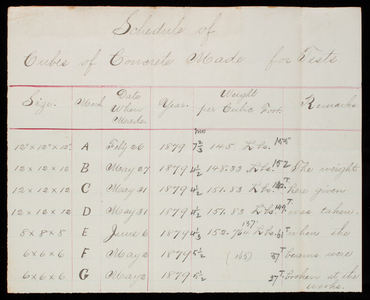 Schedule of
Cubes of Concrete Made for Tests
Size. Mark Date When Made Year. Weight per Cubic Foot Remarks
12" x 12" x 12" A Feby 26 1879 145 Lbs.
12 x 12 x 12 B May 27 1879 4½ 148.33 Lbs. The weights
12 x 12 x 12 C May 31 1879 4½ 151.83 Lbs. here given
12 x 12 x 12 D May 31 1879 4½ 151.83 Lbs. was taken
5 x 8 x 5 E June 6 1879 152.76 Lbs. when the
6 x 6 x 6 F May 2 1879 5½ beams were
6 x 6 x 6 G May 2 1879 5½ 37 T broken at the
works.